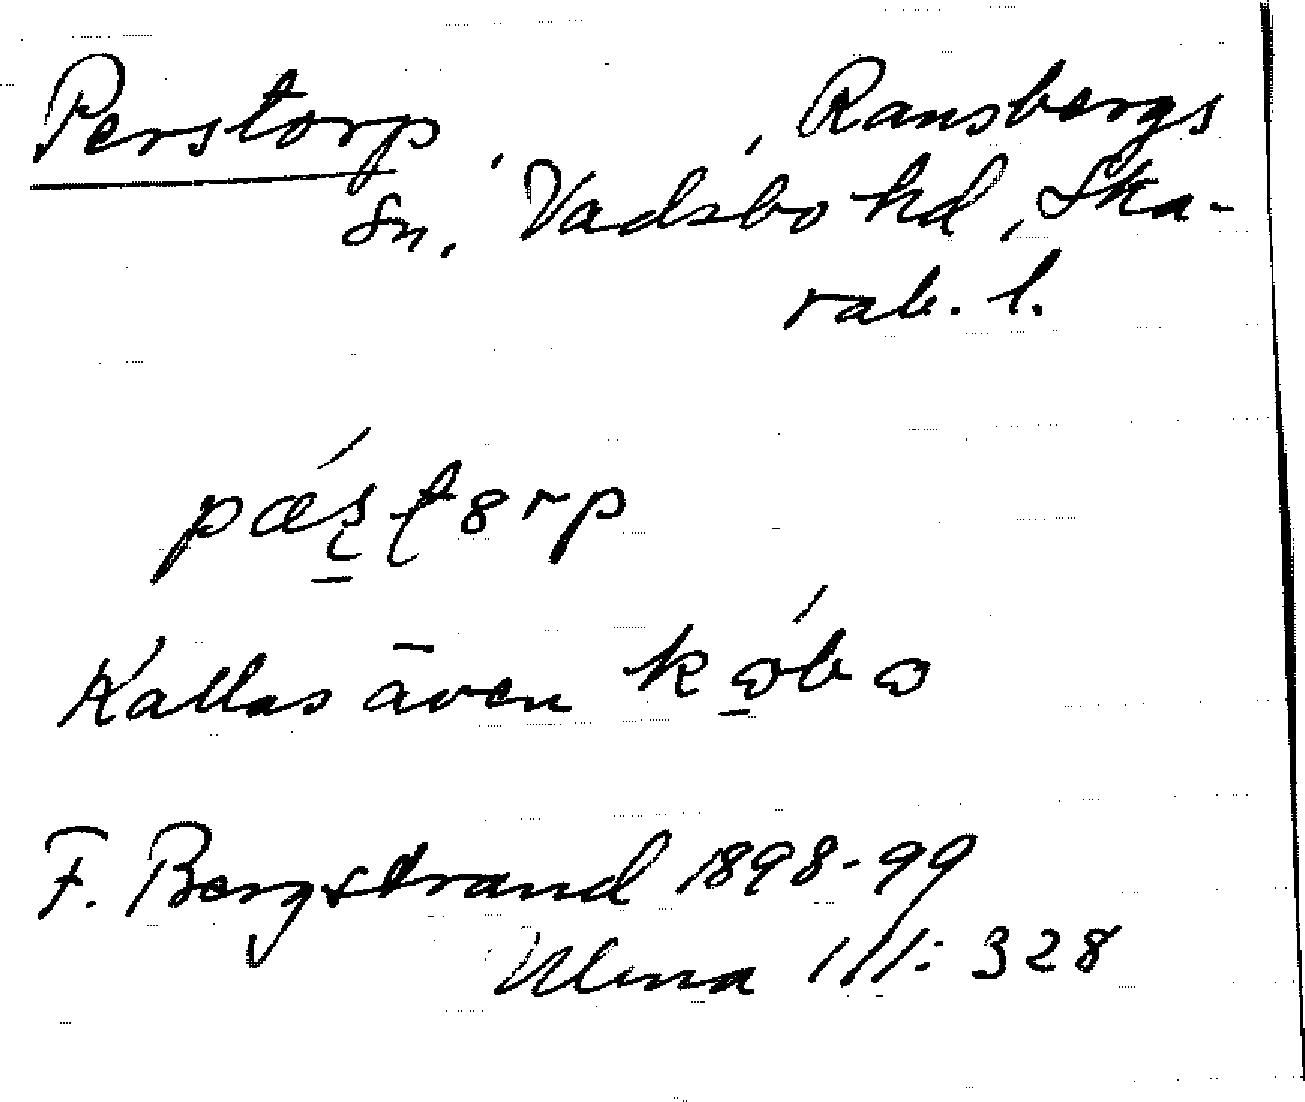 Perstorp, , Ransbergs
sn, Vadsbo hd, Ska-
rab. l.
Kallas även
F. Bergstrand 1898-99
III: 328